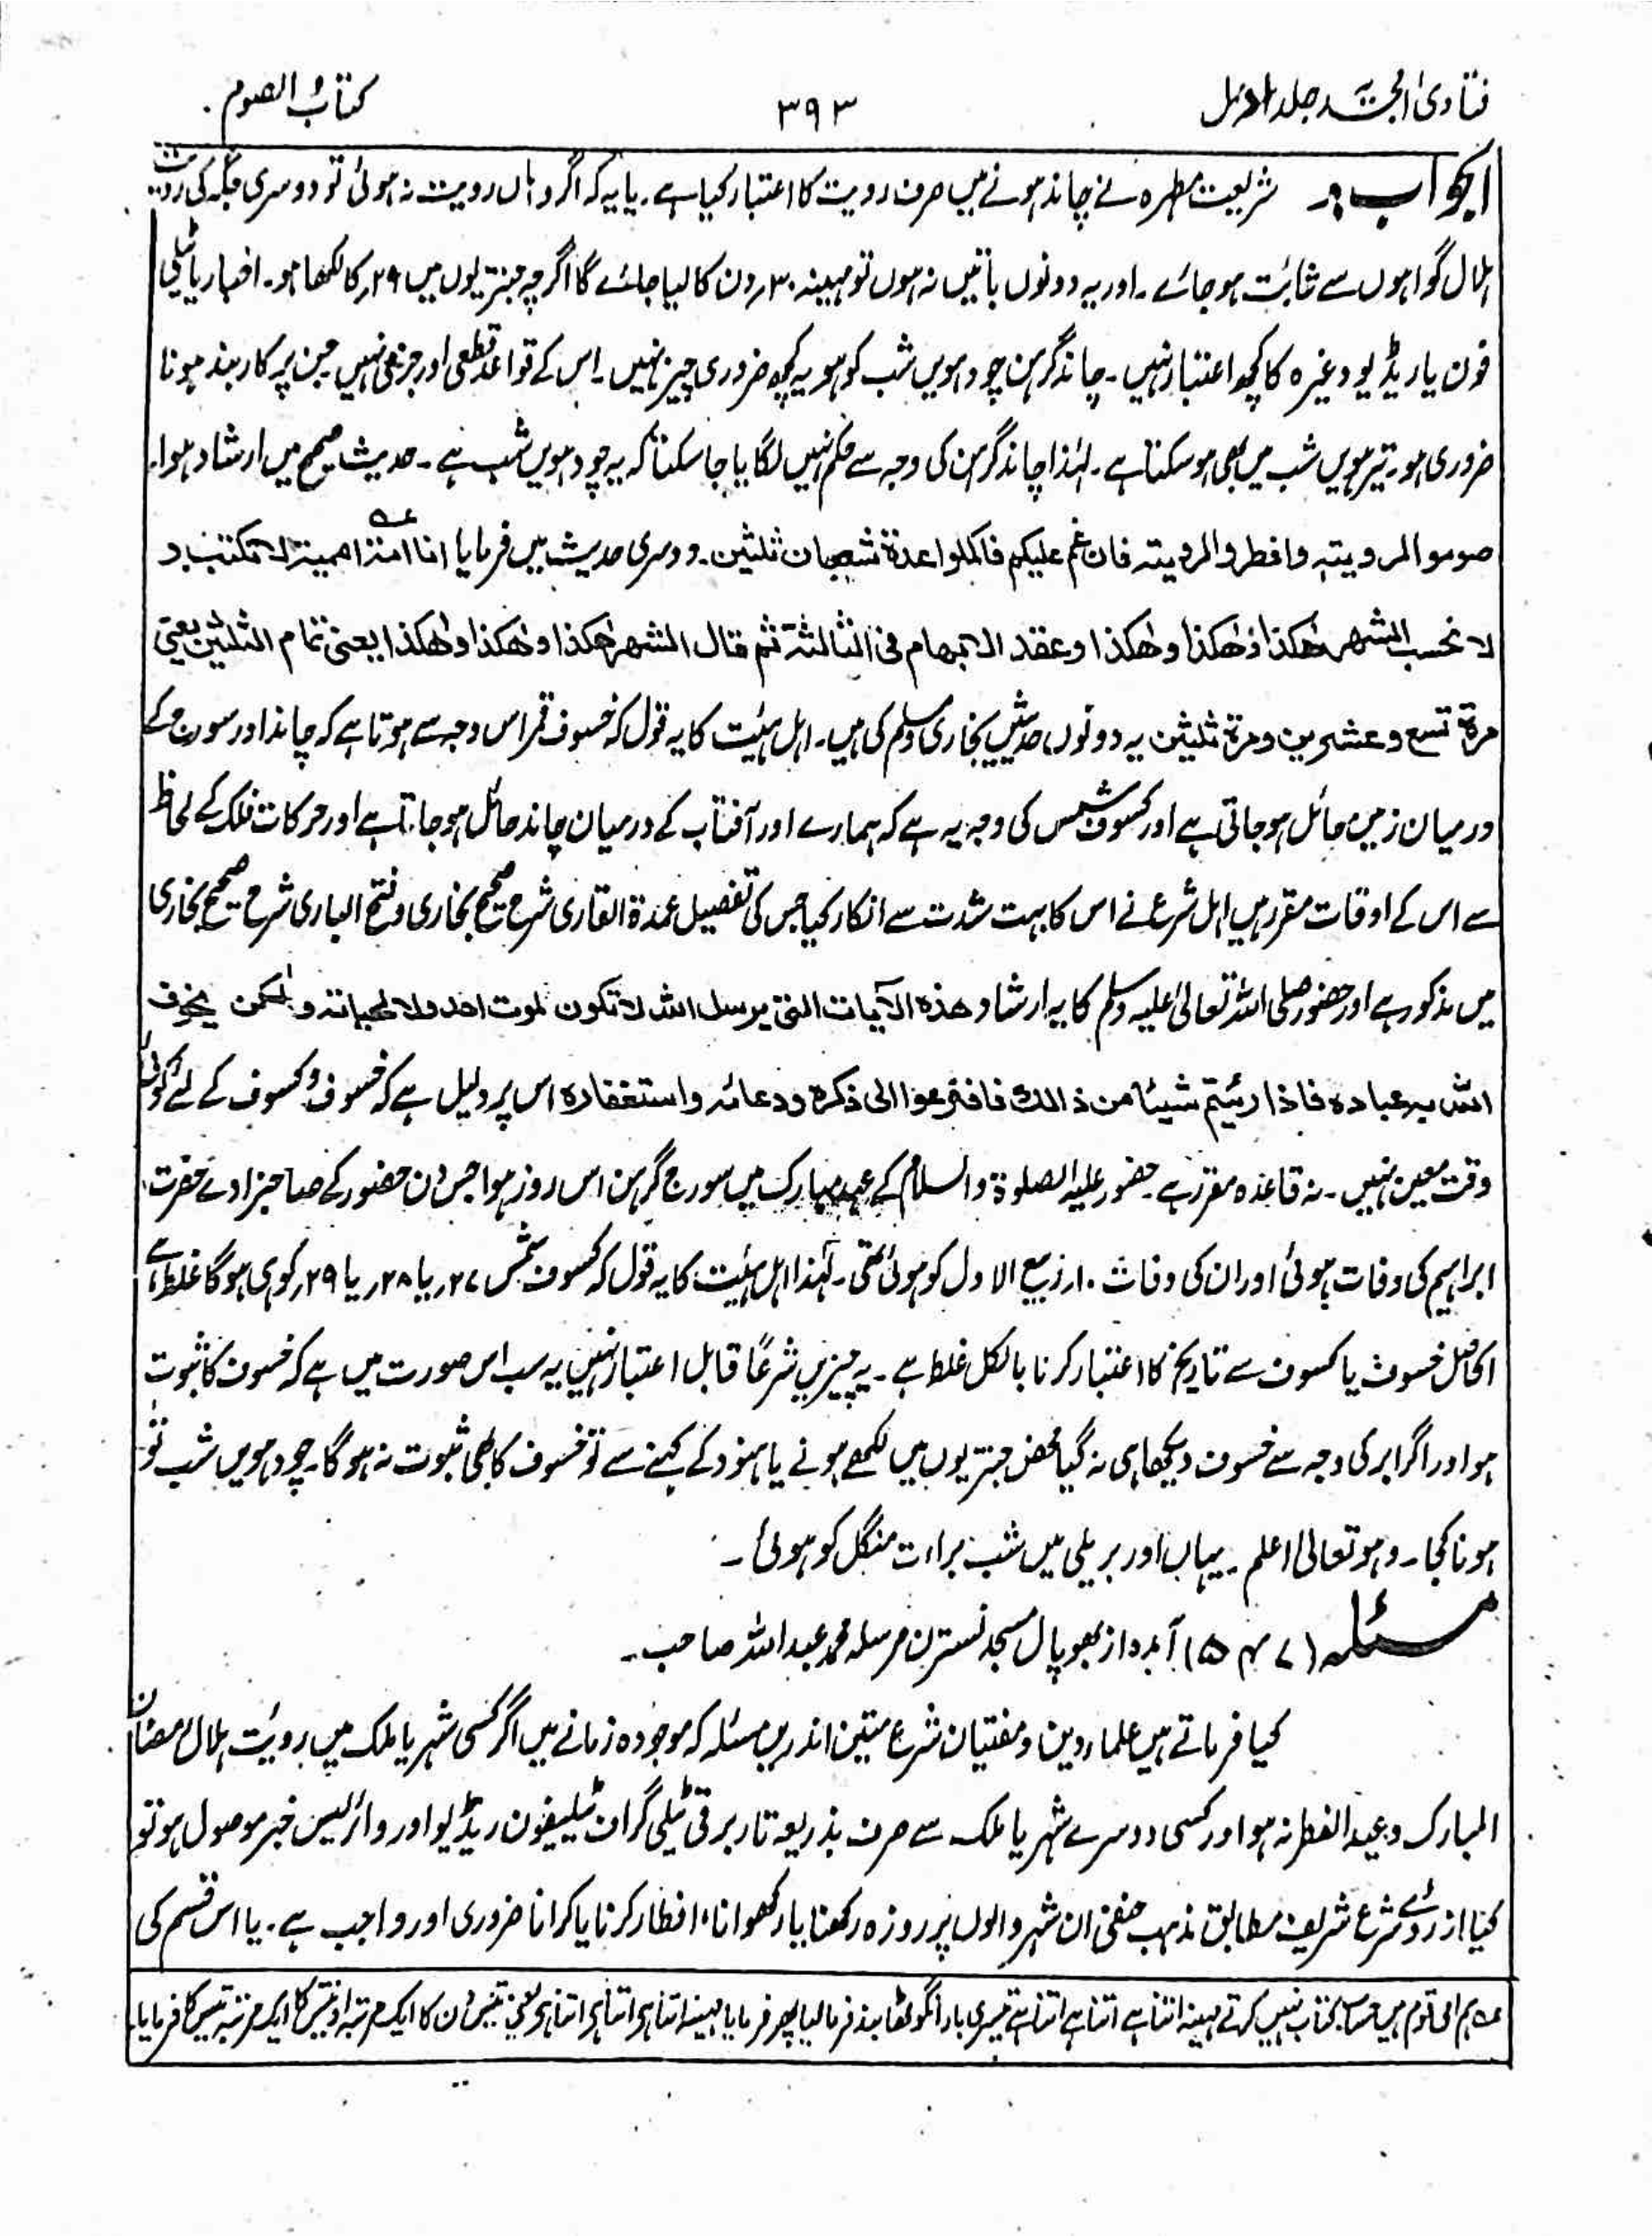 فتاویٰ امجدیہ جلد اول ۳۹۳ کتاب الصوم
الجواب۔ شریعت مطہرہ نے چاند ہونے میں صرف رویت کا اعتبار کیا ہے۔ یا یہ کہ اگر وہاں رویت نہ ہوئی تو دوسری جگہ کی رویت
ہلال گواہوں سے ثابت ہو جائے۔ اور یہ دونوں باتیں نہ ہوں تو مہینہ ۳۰ دن کا لیا جائے گا اگرچہ جنتریوں میں ۲۹ کا لکھا ہو۔ اخبار یا ٹیلی
فون یا ریڈیو وغیرہ کا کچھ اعتبار نہیں۔ چاند گرہن چودہویں شب کو ہو یہ کچھ ضروری چیز نہیں۔ اس کے قواعد قطعی اور جزمی نہیں جن پر کار بند ہونا
ضروری ہو۔ تیرہویں شب میں بھی ہو سکتا ہے۔ لہٰذا چاند گرہن کی وجہ سے حکم نہیں لگایا جا سکتا کہ یہ چودہویں شب ہے۔ حدیث صحیح میں ارشاد ہوا۔
صوموا لرویتہ وافطروا لرویتہ فان غم علیکم فاکملوا عدۃ شعبان ثلثین۔ دوسری حدیث میں فرمایا انا امۃ امیۃ لا نکتب و
لا نحسب الشہر ھٰکذا وھٰکذا وھٰکذا وعقد الابہام فی الثالثۃ ثم قال الشہر ھٰکذا وھٰکذا وھٰکذا یعنی تمام الثلثین یعنی
مرۃ تسع وعشرین ومرۃ ثلیثن یہ دونوں حدیثیں بخاری ومسلم کی ہیں۔ اہل ہیئت کا یہ قول کہ خسوف قمر اس وجہ سے ہوتا ہے کہ چاند اور سورج کے
درمیان زمین حائل ہو جاتی ہے اور کسوف شمس کی وجہ یہ ہے کہ ہمارے اور آفتاب کے درمیان چاند حائل ہو جاتا ہے اور حرکات فلک کے لحاظ
سے اس کے اوقات مقرر ہیں اہل شرع نے اس کا بہت شدت سے انکار کیا جس کی تفصیل عمدۃ القاری شرح صحیح بخاری و فتح الباری شرح صحیح بخاری
میں مذکور ہے اور حضور صلی اللہ تعالیٰ علیہ وسلم کا یہ ارشاد ھذہ الآیات التی یرسل اللہ لا تکون لموت احد ولا لحیاتہ و لٰکن یخوف
اللہ بہ عبادہ فاذا رئیتم شیئا من ذالک فافزعوا الی ذکرہ ودعائہ واستغفارہ اس پر دلیل ہے کہ خسوف وکسوف کے لئے کوئی
وقت معین نہیں۔ نہ قاعدہ مقرر ہے۔ حضور علیہ الصلوۃ والسلام کے عہد مبارک میں سورج گرہن اس روز ہوا جس دن حضور کے صاحبزادے حضرت
ابراہیم کی وفات ہوئی اور ان کی وفات ۱۰ر ربیع الاول کو ہوئی تھی۔ لہٰذا اہل ہیئت کا یہ قول کہ کسوف شمس ۲۷ر یا ۲۸ر یا ۲۹ر کو ہی ہوگا غلط ہے
الحاصل خسوف یا کسوف سے تاریخ کا اعتبار کرنا بالکل غلط ہے۔ یہ چیزیں شرعًا قابل اعتبار نہیں یہ سب اس صورت میں ہے کہ خسوف کا ثبوت
ہو اور اگر ابر کی وجہ سے خسوف دیکھا ہی نہ گیا محض جنتریوں میں لکھے ہونے یا ہنود کے کہنے سے تو خسوف کا بھی ثبوت نہ ہوگا۔ چودہویں شب تو
ہونا کجا۔ وہو تعالیٰ اعلم۔ یہاں اور بریلی میں شب براءت منگل کو ہوئی۔
مسئلہ (۵۴۷) آمدہ از بھوپال مسجد نسترن مرسلہ محمد عبداللہ صاحب۔
کیا فرماتے ہیں علماء دین ومفتیان شرع متین اندریں مسئلہ کہ موجودہ زمانے میں اگر کسی شہر یا ملک میں رویت ہلال رمضان
المبارک وعید الفطر نہ ہو اور کسی دوسرے شہر یا ملک سے صرف بذریعہ تار برقی ٹیلی گراف ٹیلیفون ریڈیو اور وائرلیس خبر موصول ہو تو
کیا از روئے شرع شریف مطابق مذہب حنفی ان شہر والوں پر روزہ رکھنا یا رکھوانا، افطار کرنا یا کرانا ضروری اور واجب ہے۔ یا اس قسم کی
عہ ہم امی قوم ہیں حساب کتاب نہیں کرتے مہینہ اتنا ہے اتنا ہے اتنا ہے تیسری بار انگوٹھا بند فرما لیا پھر فرمایا مہینہ اتنا ہے اتنا ہے اتنا ہے یعنی تیس دن کا ایک مرتبہ انتیس کا ایک مرتبہ تیس کا فرمایا۔